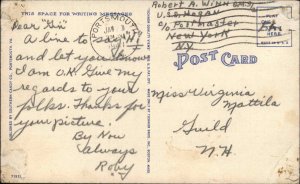 THIS SPACE FOR WRITING MESSAGES
Dear "Gin"
A line to say "Hi"
and let you know
I am O.K. Give my
regards to your
folks. Thanks for
your picture.
By Now
always
Roby
PORTSMOUTH
JAN
Robert A. Winn
U.S.S. Hogan
c/o Postmaster
New York
NY
POST CARD
Miss Virginia
Mattila
Guild
N.H